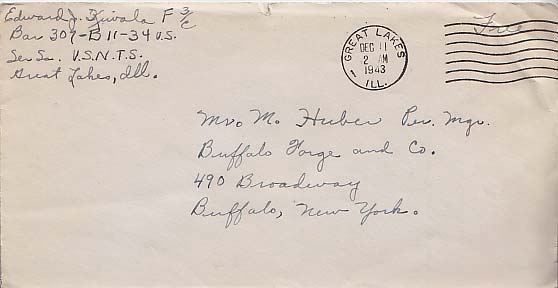 Edward J. Kiwala F 3/c
Bar 307-B 11-34 U.S.
Ser Sa. U.S.N.T.S.
Great Lakes, Ill.
GREAT LAKES
DEC 11
2 AM
1943
1 ILL.
Free
Mr. M. Huber Per. Mgr.
Buffalo Forge and Co.
490 Broadway
Buffalo, New York.